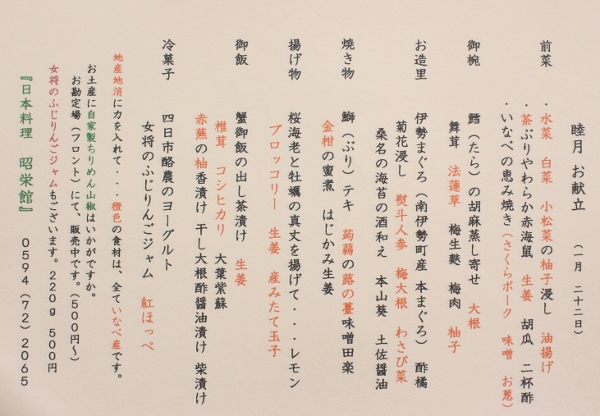 睦月 お献立 (一月 二十二日)
前菜
・水菜 白菜 小松菜の柚子浸し 油揚げ
・茶ぶりやわらか赤海鼠 生姜 胡瓜 二杯酢
・いなべの恵み焼き(さくらポーク 味噌 お葱)
御椀
鱈(たら)の胡麻蒸し寄せ 大根
舞茸 法蓮草 梅生麩 梅肉 柚子
お造里
伊勢まぐろ(南伊勢町産 本まぐろ) 酢橘
菊花浸し 熨斗人参 梅大根 わさび菜
桑名の海苔の酒和え 本山葵 土佐醤油
焼き物
鰤(ぶり)テキ 蒟蒻の蕗の薹味噌田楽
金柑の蜜煮 はじかみ生姜
揚げ物
桜海老と牡蠣の真丈を揚げて・・・レモン
ブロッコリー 生姜 産みたて玉子
御飯
蟹御飯の出し茶漬け 生姜
椎茸 コシヒカリ 大葉紫蘇
赤蕪の柚香漬け 干し大根酢醤油漬け 柴漬け
冷菓子
四日市酪農のヨーグルト
女将のふじりんごジャム 紅ほっぺ
地産地消に力を入れて・・・橙色の食材は、全ていなべ産です。
お土産に自家製ちりめん山椒はいかがですか。
お勘定場(フロント)にて、販売中です。(500円~)
女将のふじりんごジャムもございます。220g 500円
『日本料理 昭栄館』 0594(72)2065